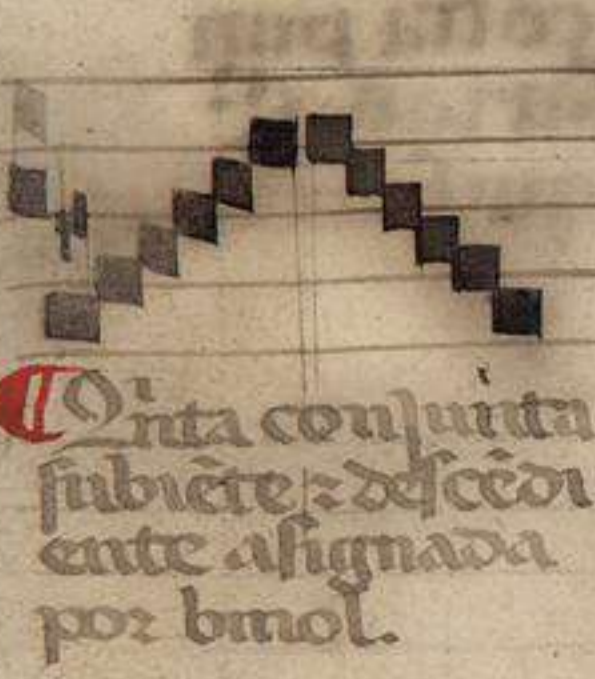 ¶ Qⁱnta conJunta
subiēte ⁊ descēdi
ente asignada
por bmol.